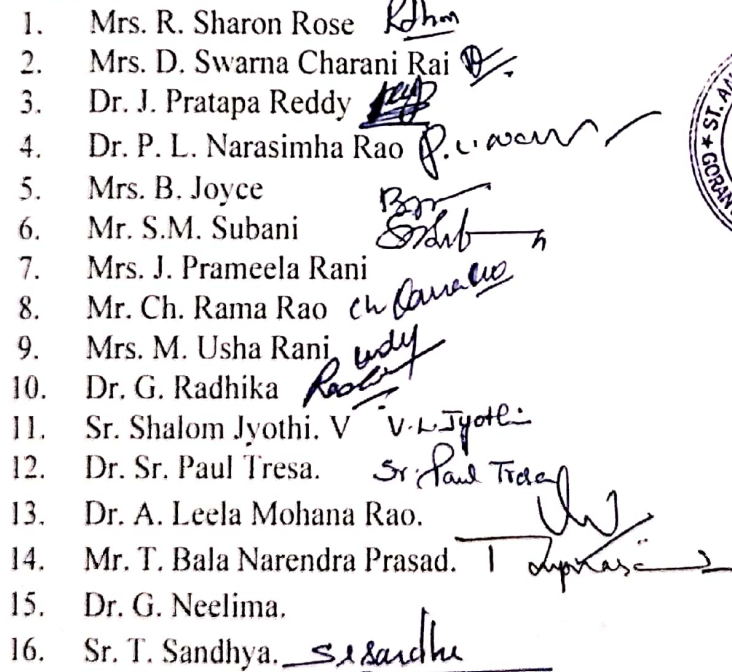 1. Mrs. R. Sharon Rose
2. Mrs. D. Swarna Charani Rai
3. Dr. J. Pratapa Reddy
4. Dr. P. L. Narasimha Rao
5. Mrs. B. Joyce
6. Mr. S.M. Subani
7. Mrs. J. Prameela Rani
8. Mr. Ch. Rama Rao Ch Rama Rao
9. Mrs. M. Usha Rani
10. Dr. G. Radhika
11. Sr. Shalom Jyothi. V V.L Jyothi
12. Dr. Sr. Paul Tresa. Sr. Paul Tresa
13. Dr. A. Leela Mohana Rao.
14. Mr. T. Bala Narendra Prasad.
15. Dr. G. Neelima.
16. Sr. T. Sandhya. Sr Sandhya
ST. AN
GORAN